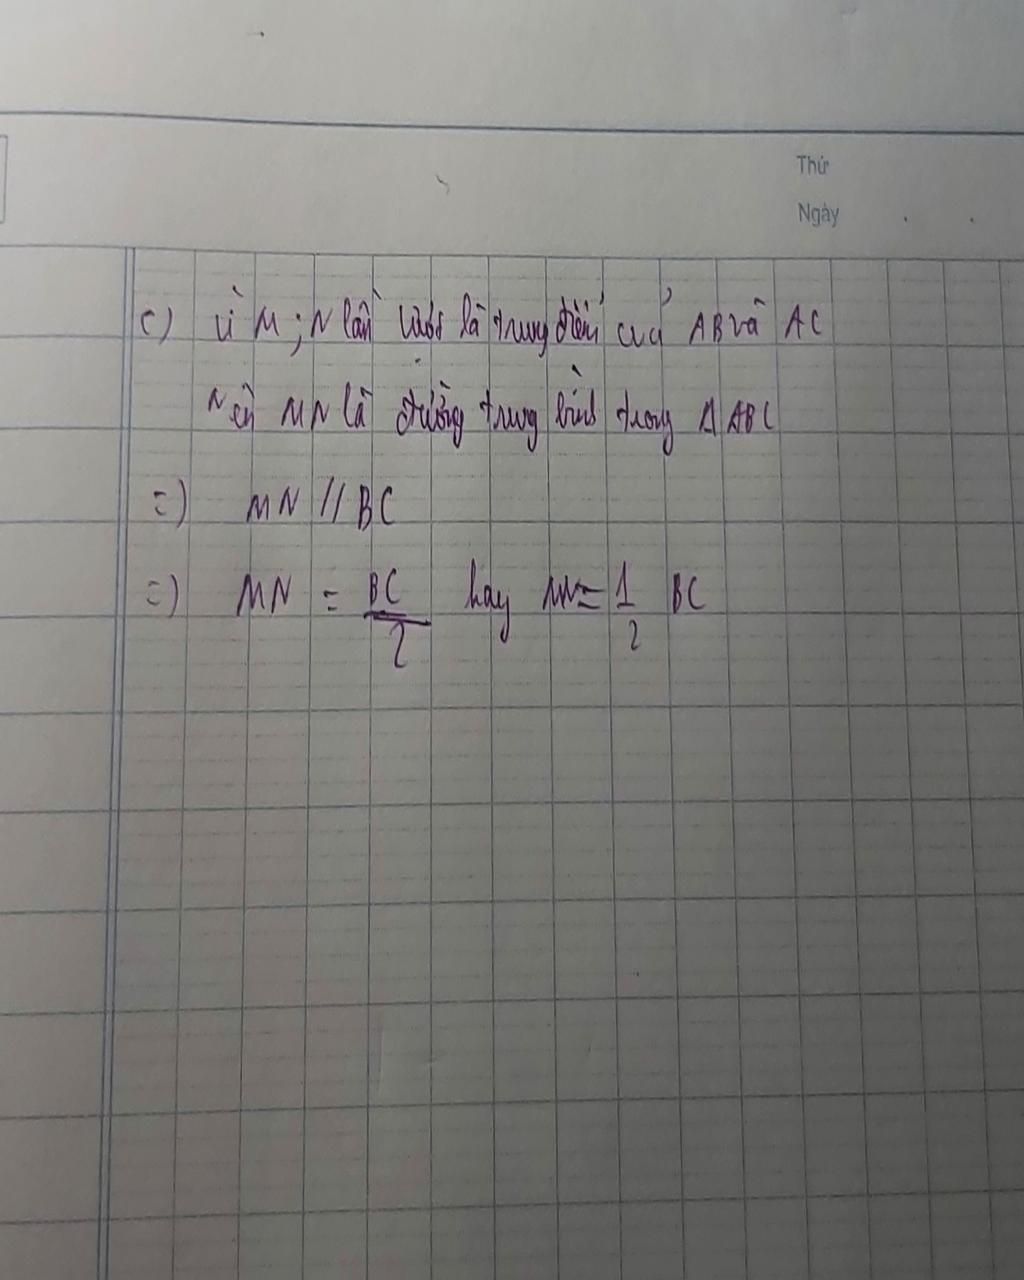 Thứ
Ngày
c) Vì M; N lần lượt là trung điểm của AB và AC
Nên MN là đường trung bình trong Δ ABC
=) MN // BC
=) MN = BC/2 hay MN = 1/2 BC